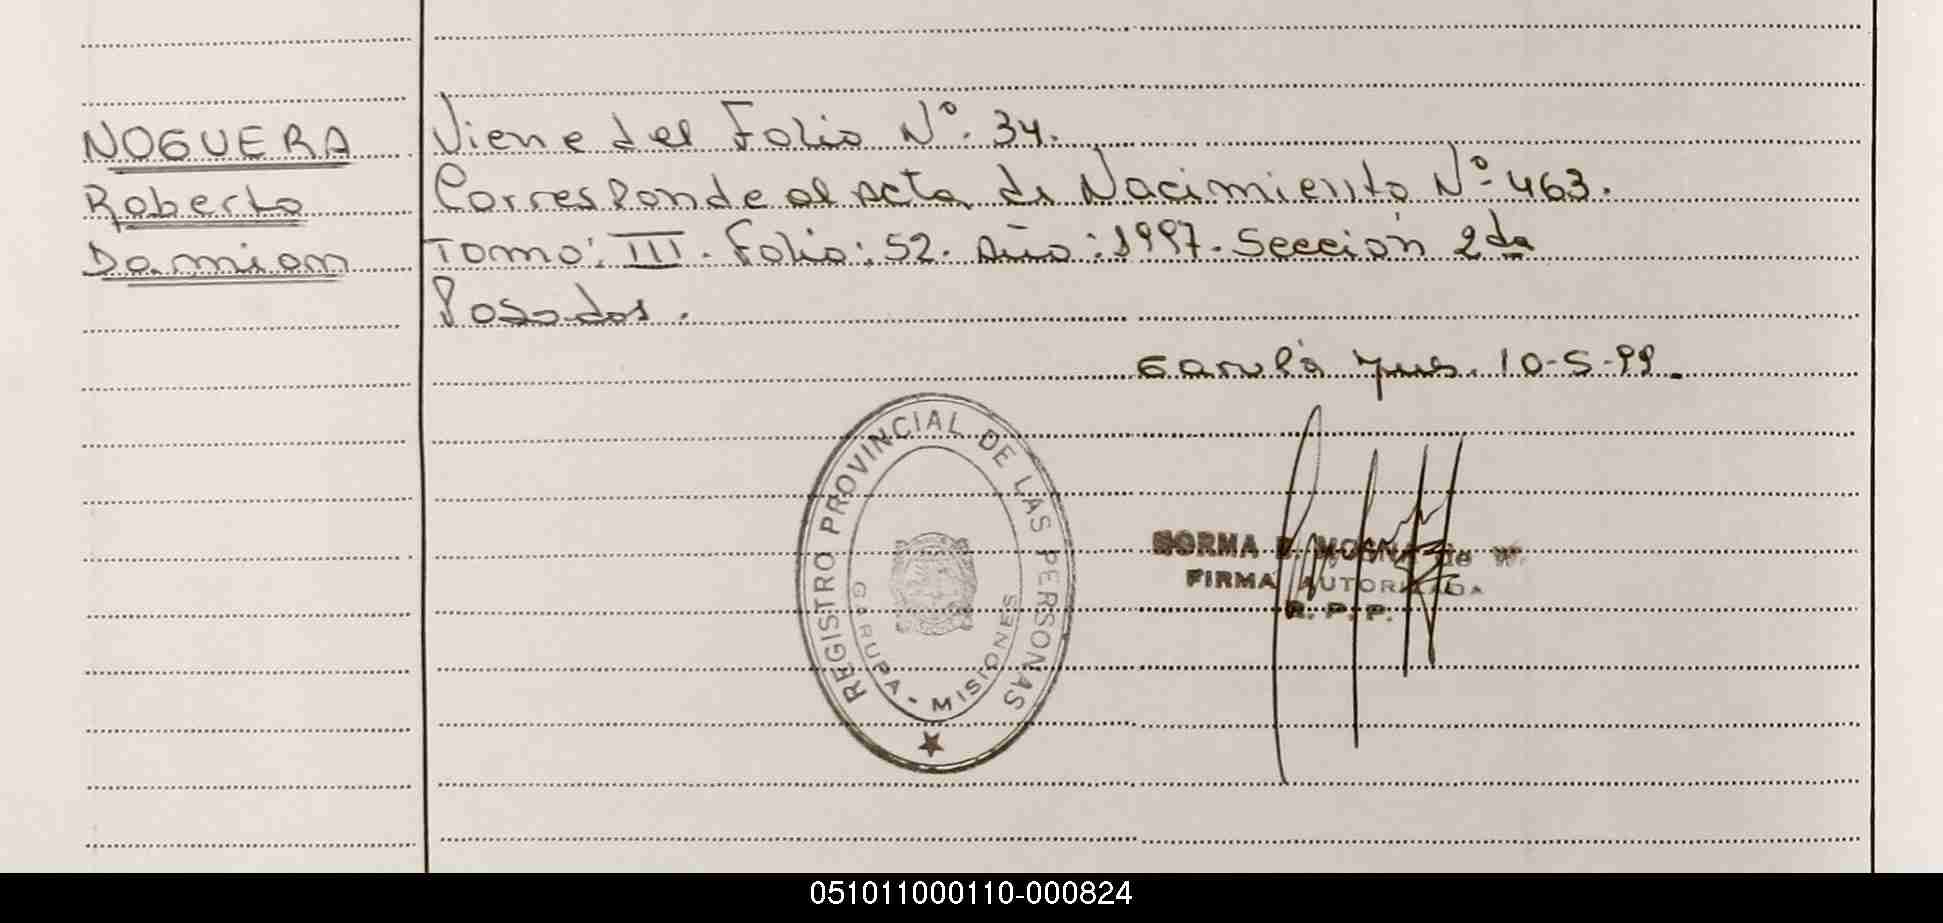 NOGUERA
Roberto
Damian
Viene del Folio Nº. 34.
Corresponde al acta de Nacimiento Nº 463.
Tomo: III. Folio: 52. Año: 1997. Sección 2da
Posadas.
Garupá Mnes. 10-5-99.
REGISTRO PROVINCIAL DE LAS PERSONAS
GARUPA - MISIONES
NORMA de W.
FIRMA AUTORIZADA
R. P. P.
051011000110-000824